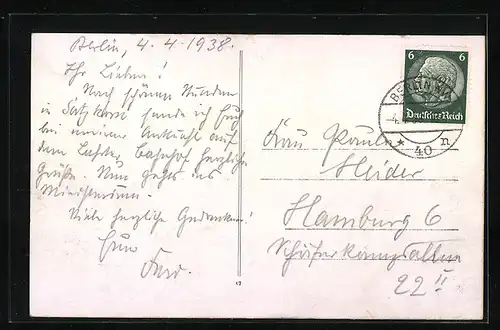 Berlin, 4.4.1938.
Ihr Lieben!
Nach schönen Stunden
in sende ich Euch
bei meiner Ankunft auf
dem Bahnhof herzliche
Grüße. Nun geht es ins
Ministerium.
Viele herzliche Gedanken!
Euer
6 6
Deutsches Reich
BERLIN
-4.
* 40 n
Frau Paula
Heider
Hamburg 6
Schäferkampsallee
22 II